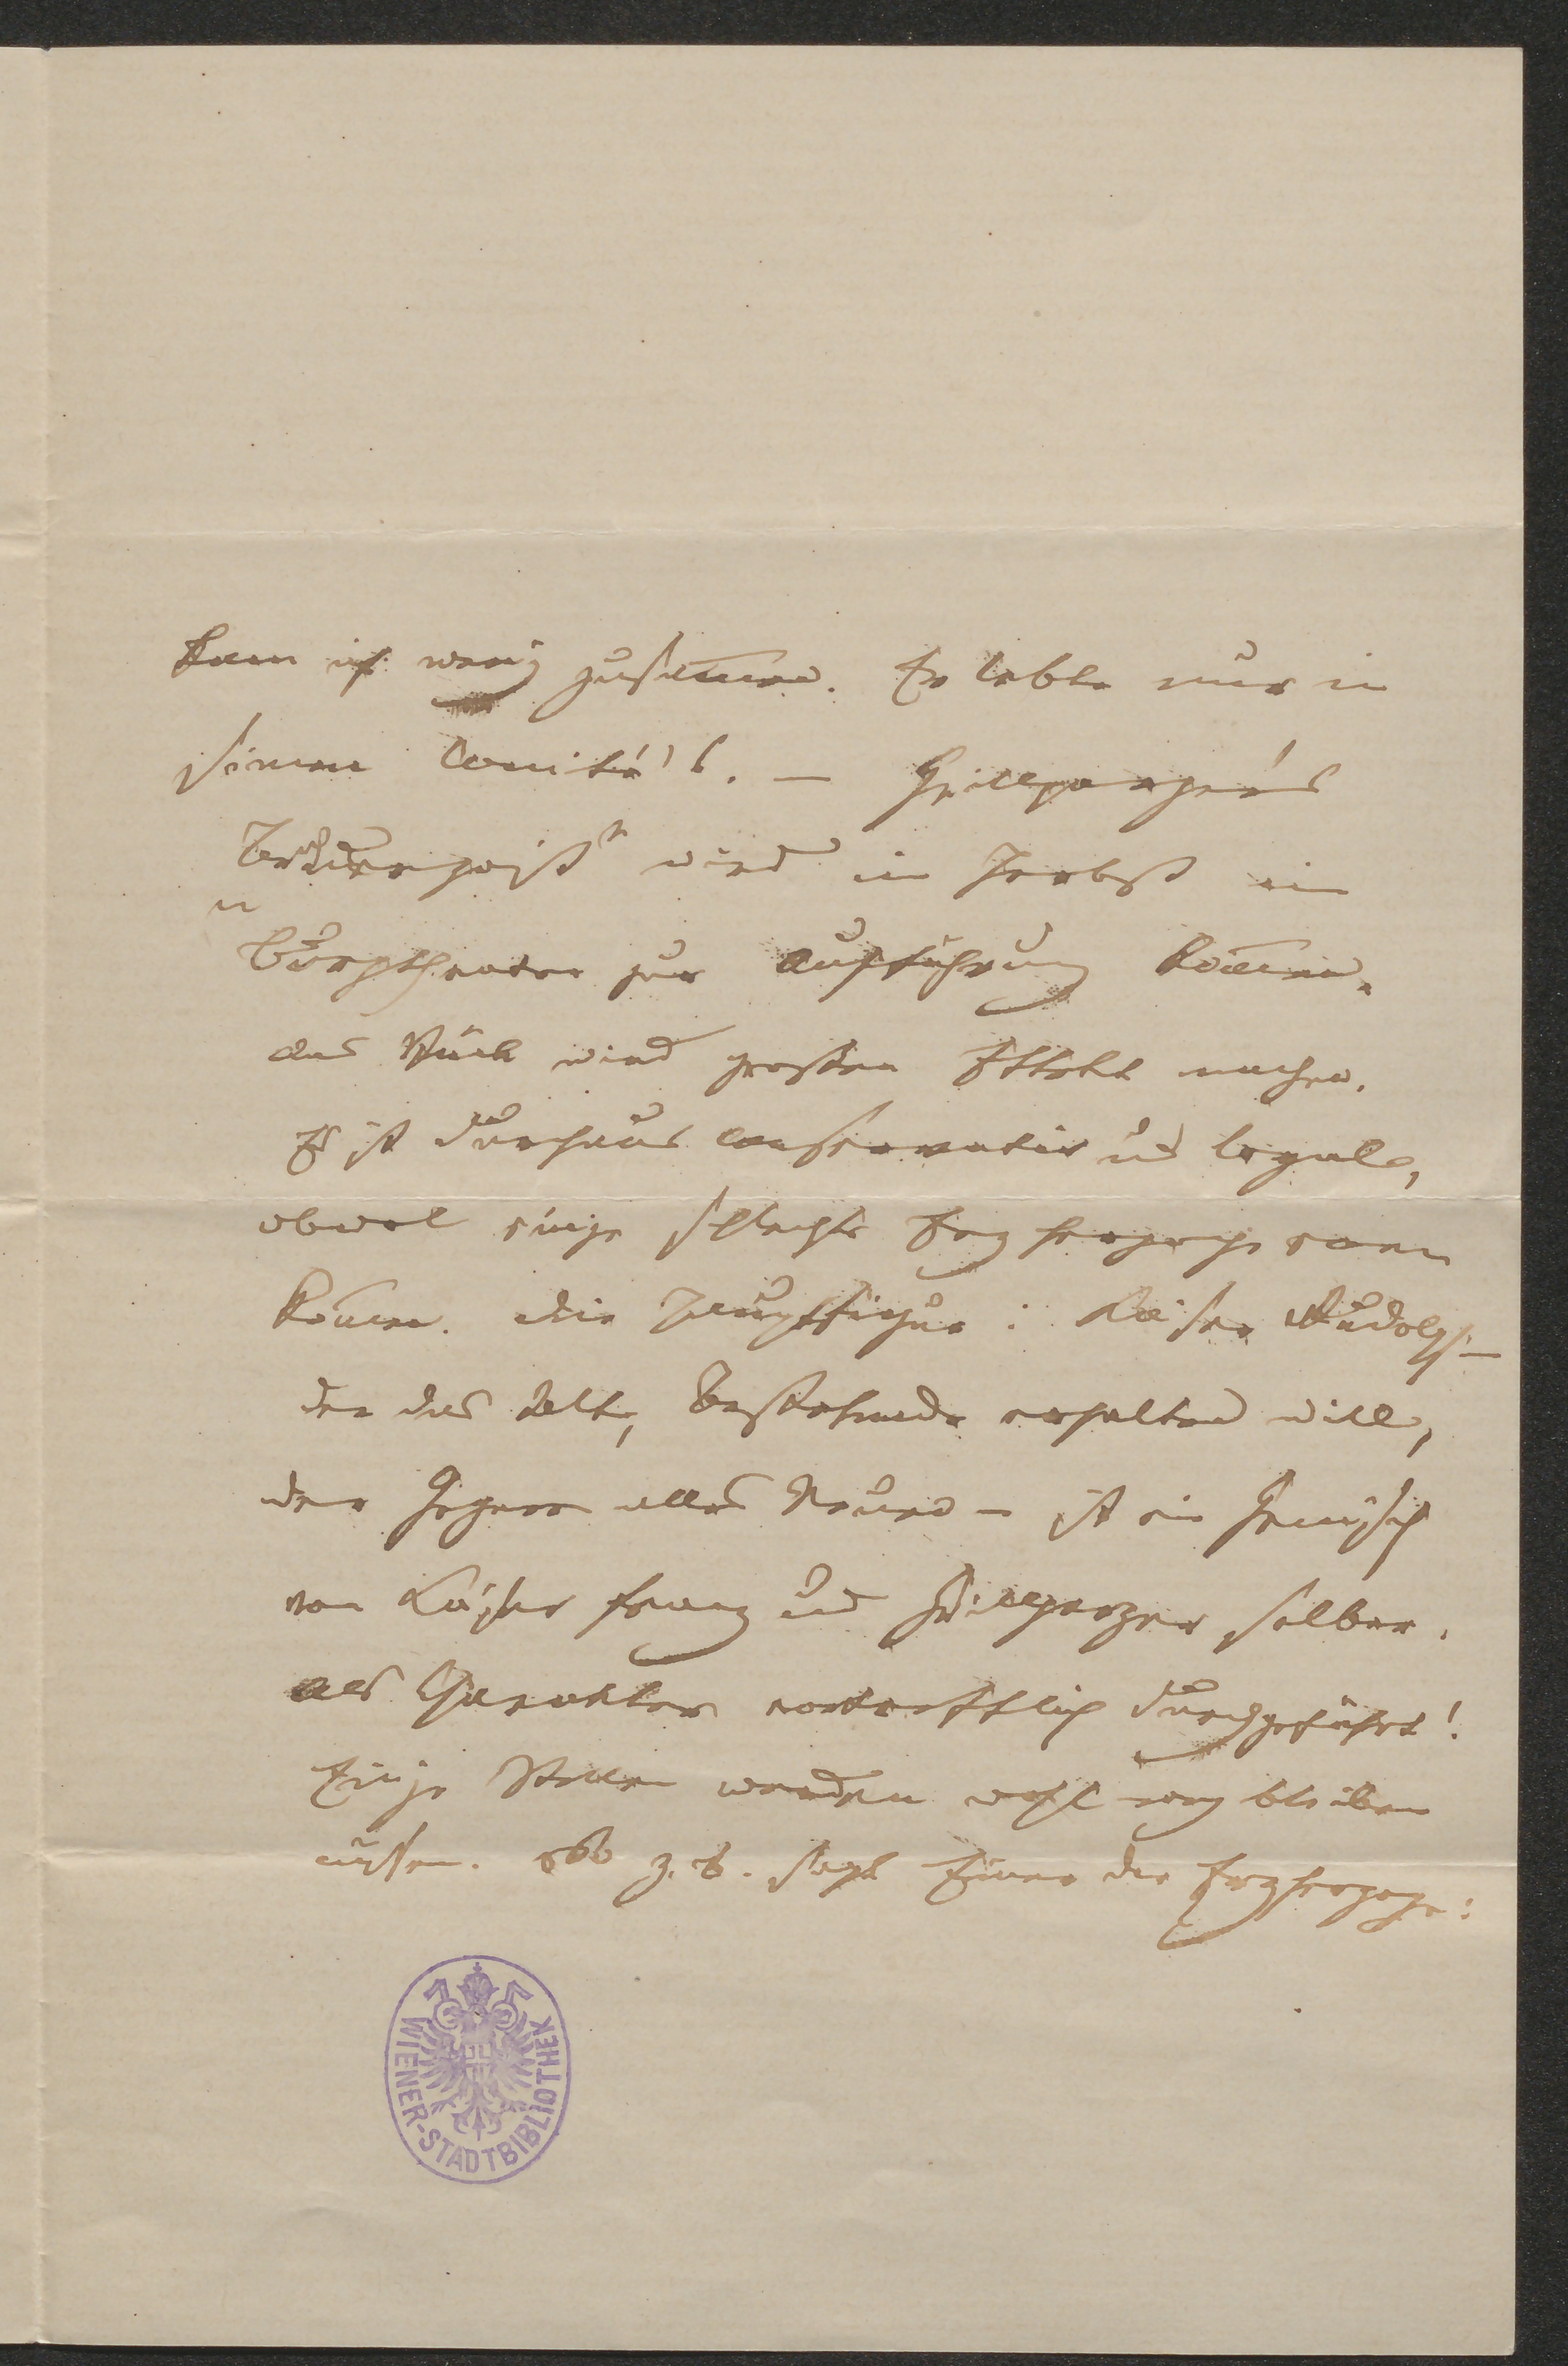 kam ich wenig zusam̅en. Er lebte nur in
seinen Comité's. — Grillparzer's
„Bruderzwist" wird im Herbst im
Burgtheater zur Aufführung kom̅en.
Das Stück wird großen Effekt machen.
Es ist durchaus conservativ und loyal,
obwol einige schlechte Erzherzoge vor
kom̅en. Die Hauptfigur: Kaiser Rudolph —
der das Alte, Bestehende erhalten will,
der Gegner alles Neuen — ist ein Gemisch
von Kaiser Franz und Grillparzer selber.
Als Charakter vortrefflich durchgeführt!
Einige Stellen werden wohl weg bleiben
müssen. So z. B. sagt Einer der Erzherzoge:
WIENER-STADTBIBLIOTHEK